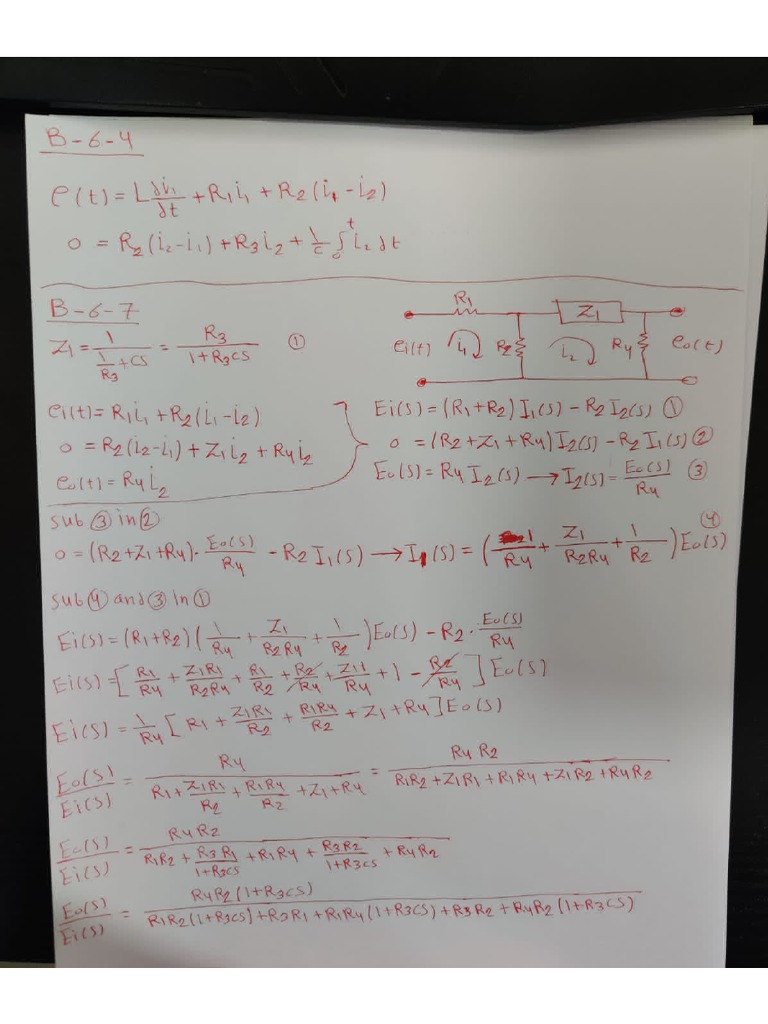 B-6-4
e(t) = L di₁/dt + R₁i₁ + R₂(i₁-i₂)
0 = R₂(i₂-i₁) + R₃i₂ + 1/c ∫₀ᵗ i₂ dt
B-6-7
Z₁ = 1/(1/R₃ + CS) = R₃/(1+R₃CS) ①
R₁ Z₁
ei(t) i₁ R₂ i₂ R₄ eo(t)
ei(t) = R₁i₁ + R₂(i₁-i₂)
0 = R₂(i₂-i₁) + Z₁i₂ + R₄i₂
eo(t) = R₄i₂
Ei(s) = (R₁+R₂)I₁(s) - R₂I₂(s) ①
0 = (R₂+Z₁+R₄)I₂(s) - R₂I₁(s) ②
Eo(s) = R₄I₂(s) → I₂(s) = Eo(s)/R₄ ③
sub ③ in ②
0 = (R₂+Z₁+R₄)·Eo(s)/R₄ - R₂I₁(s) → I₁(s) = (1/R₄ + Z₁/R₂R₄ + 1/R₂)Eo(s) ④
sub ④ and ③ in ①
Ei(s) = (R₁+R₂)(1/R₄ + Z₁/R₂R₄ + 1/R₂)Eo(s) - R₂·Eo(s)/R₄
Ei(s) = [R₁/R₄ + Z₁R₁/R₂R₄ + R₁/R₂ + R₂/R₄ + Z₁1/R₄ + 1 - R₂/R₄]Eo(s)
Ei(s) = 1/R₄[R₁ + Z₁R₁/R₂ + R₁R₄/R₂ + Z₁ + R₄]Eo(s)
Eo(s)/Ei(s) = R₄/(R₁ + Z₁R₁/R₂ + R₁R₄/R₂ + Z₁ + R₄) = R₄R₂/(R₁R₂ + Z₁R₁ + R₁R₄ + Z₁R₂ + R₄R₂)
Eo(s)/Ei(s) = R₄R₂/(R₁R₂ + R₃R₁/(1+R₃CS) + R₁R₄ + R₃R₂/(1+R₃CS) + R₄R₂)
Eo(s)/Ei(s) = R₄R₂(1+R₃CS)/(R₁R₂(1+R₃CS) + R₃R₁ + R₁R₄(1+R₃CS) + R₃R₂ + R₄R₂(1+R₃CS))